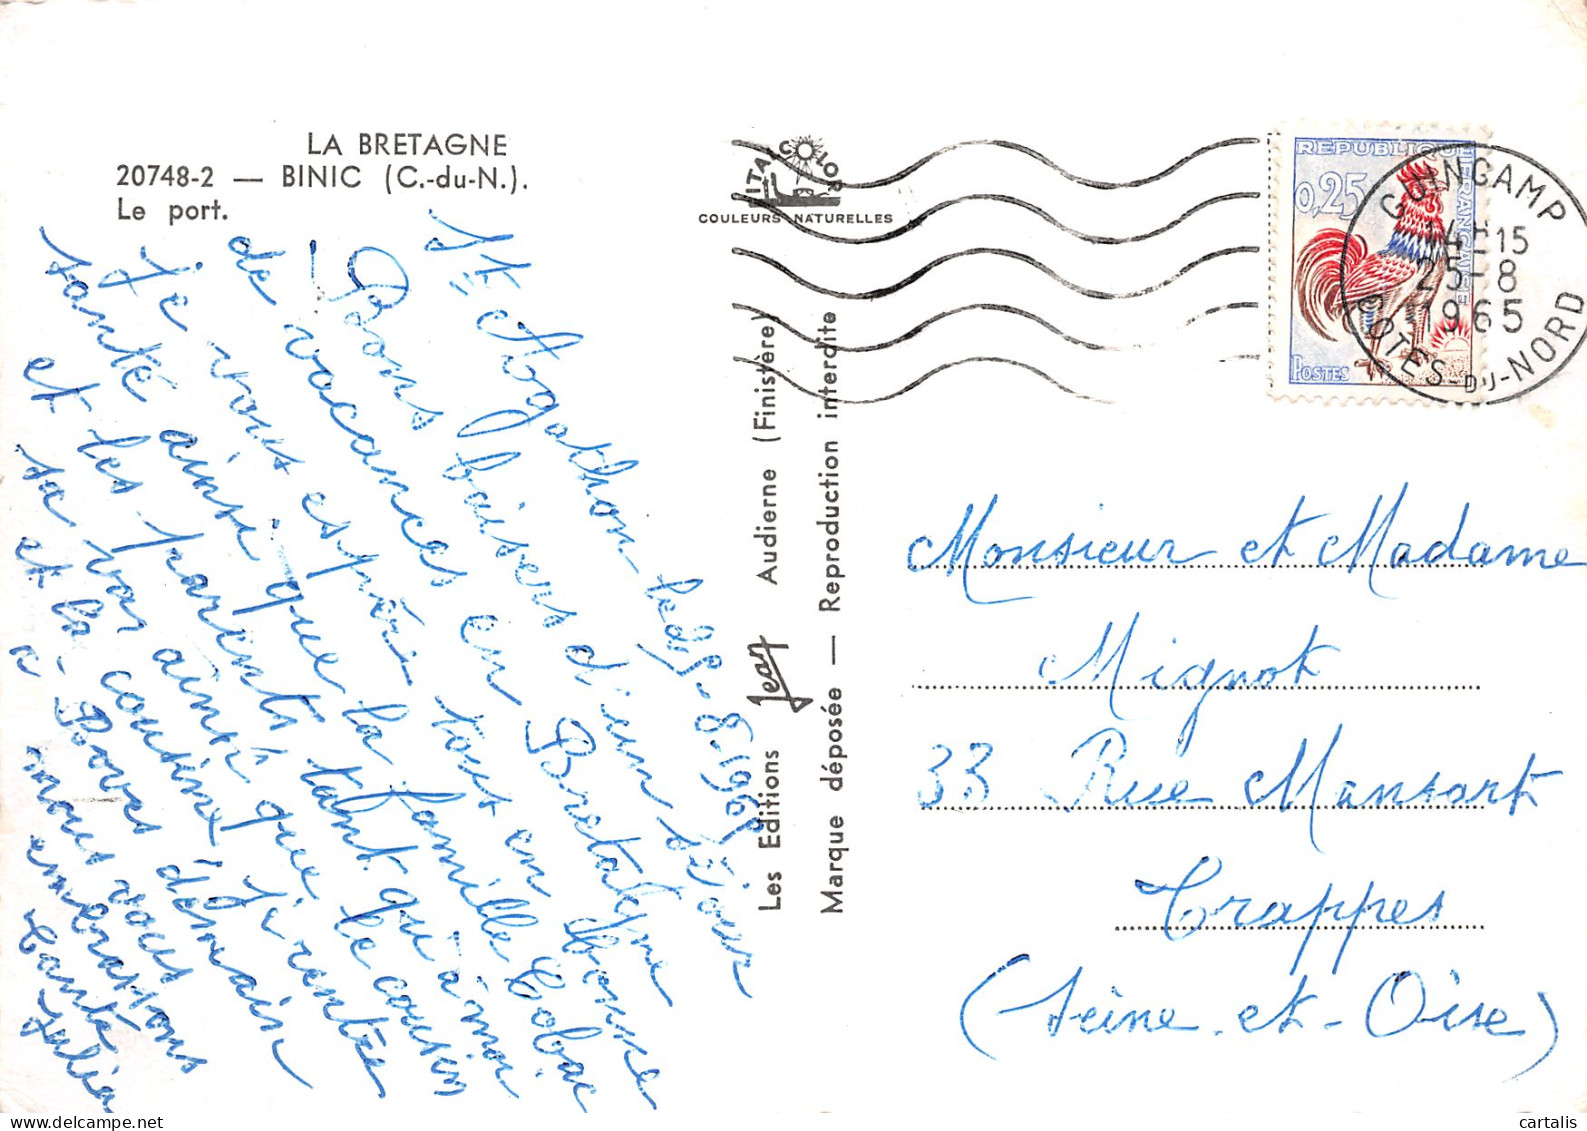 LA BRETAGNE
20748-2 — BINIC (C.-du-N.).
Le port.
ITALCOLOR
COULEURS NATURELLES
REPUBLIQUE FRANÇAISE
0,25
POSTES
GUINGAMP
14H15
25-8
1965
COTES-DU-NORD
Les Editions Jean Audierne (Finistère)
Marque déposée — Reproduction interdite
St Agathon le 25-8-1965
Bons baisers d'un séjour
de vacances en Bretagne
Je vous espère tous en bonne
santé ainsi que la famille Cobac
et les parents tant qu'à moi
sa va ainsi que le cousin
et la cousine, Je rentre
à Bover demain
nous vous
embrassons
Tante
Julia
Monsieur et Madame
Mignot
33 Rue Mansart
Trappes
(Seine-et-Oise)
cartalis